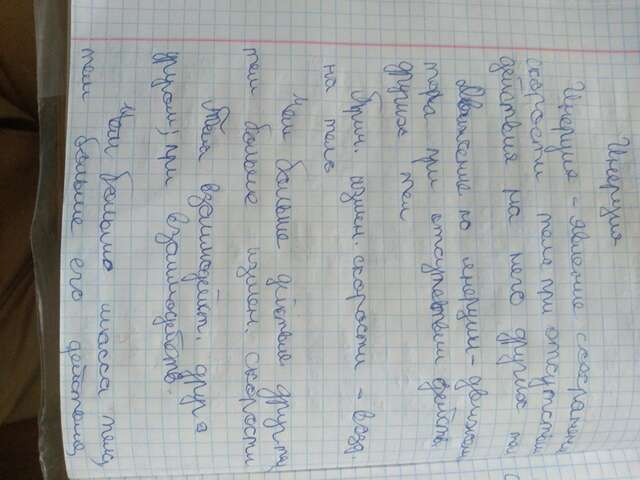 Инерция
Инерция - явление сохранен
скорости тела при отсутствии
действия на него других те
Движение по инерции - движен
тела при отсутствии действ
других тел
Прич. измен. скорости - возд.
на тело
Чем больше действие других
тем больше измен. скорости
Тела взаимодейст. друг с
другом; при взаимодейств.
Чем больше масса тела,
тем больше его действие,